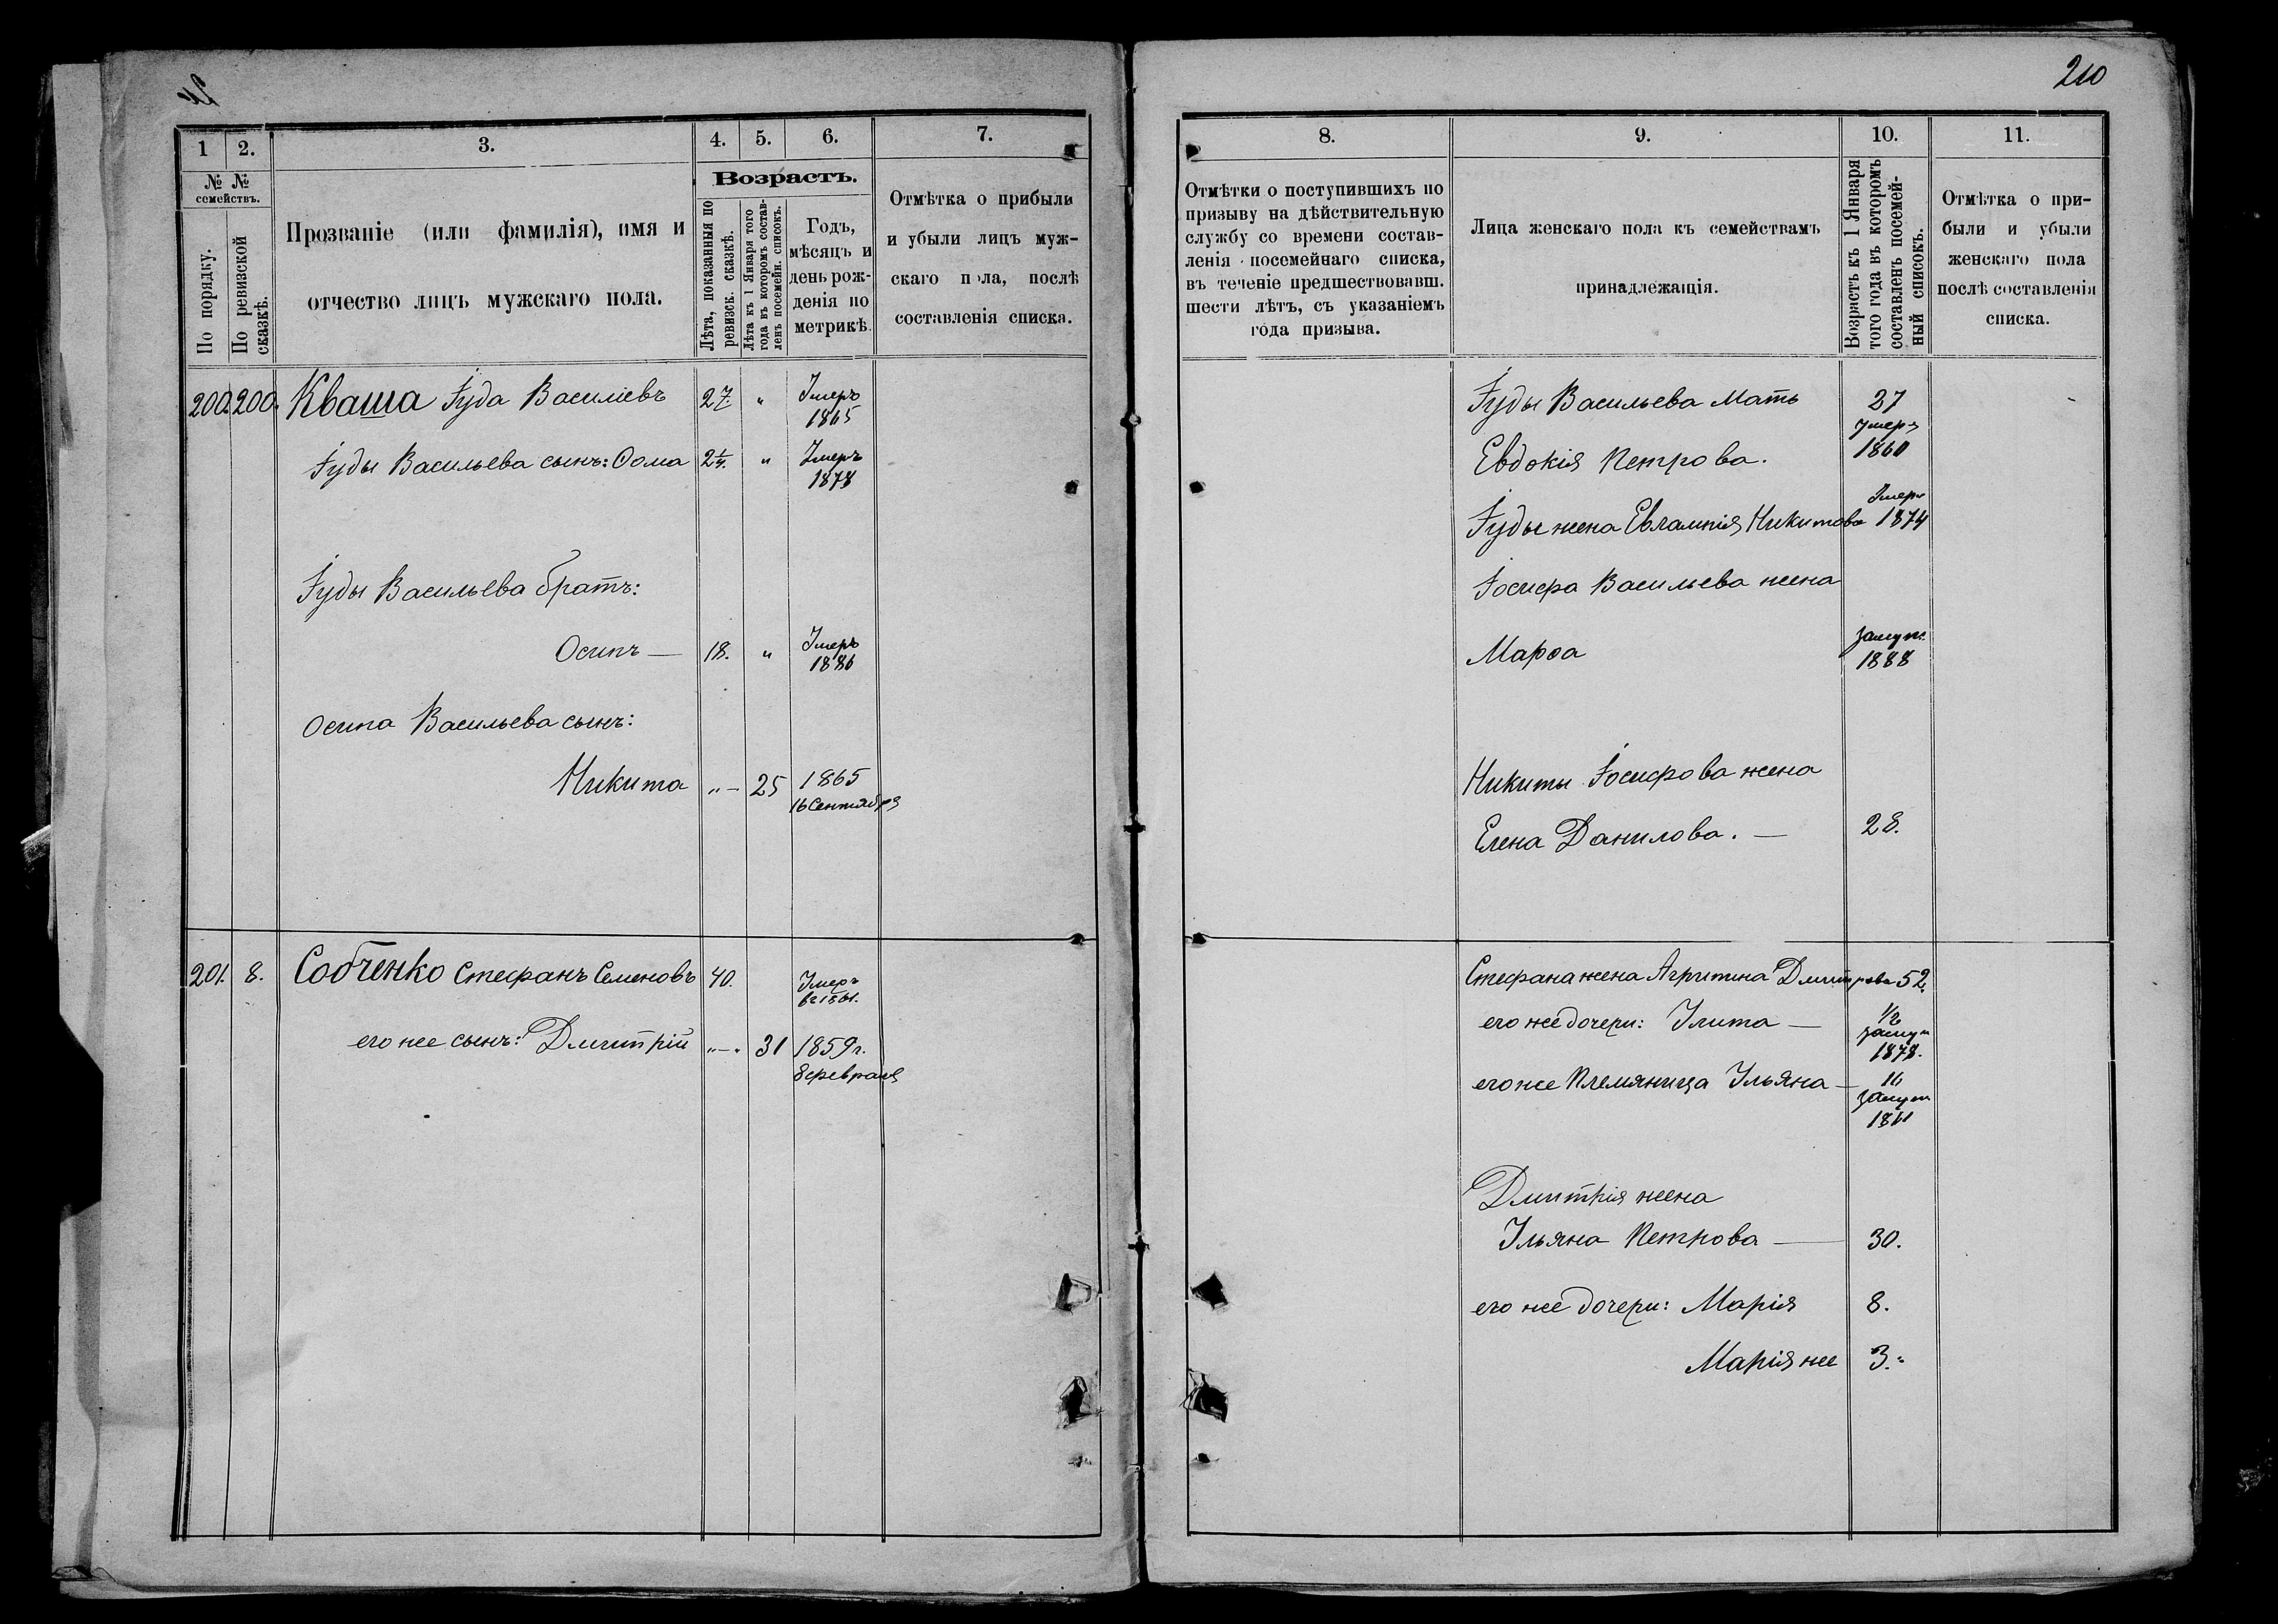 210
1
2.
3.
4.
5.
6.
7.
№ №
семействъ.
По порядку.
По ревизской сказкѣ.
Прозваніе (или фамилія), имя и
отчество лицъ мужскаго пола.
Возрастъ.
Лѣта, показанныя по
ревизск. сказкѣ.
Лѣта къ 1 Января того
года въ которомъ состав-
ленъ посемейн. списокъ.
Годъ,
мѣсяцъ и
день рож-
денія по
метрикѣ.
Отмѣтка о прибыли
и убыли лицъ муж-
скаго пола, послѣ
составленія списка.
8.
9.
10.
11.
Отмѣтки о поступившихъ по
призыву на дѣйствительную
службу со времени состав-
ленія посемейнаго списка,
въ теченіе предшествовавш.
шести лѣтъ, съ указаніемъ
года призыва.
Лица женскаго пола къ семействамъ
принадлежащія.
Возрастъ къ 1 Января
того года въ которомъ
составленъ посемей-
ный списокъ.
Отмѣтка о при-
были и убыли
женскаго пола
послѣ составленія
списка.
200. 200. Кваша Іуда Василіевъ 27. " Умеръ
1865
Іуды Васильева сынъ: Ѳома " Умеръ
1878
Іуды Васильева братъ:
Осипъ — 18. " Умеръ
1886
Осипа Васильева сынъ:
Никита "– 25 1865
16 Сентября
Іуды Васильева Мать 27
Умер.
1860
Евдокія Петрова.
Іуды жена Евлампія Никитова Умер.
1874
Іосифа Васильева жена
Марѳа замуж.
1888
Никиты Іосифова жена
Елена Данилова. — 28.
201. 8. Собченко Стефанъ Семеновъ 40. Умеръ
въ 1861.
его же сынъ: Дмитрій "–" 31 1859 г.
8 февраля
Стефана жена Агрипина Дмитрова 52.
его же дочери: Улита — 1/2
замуж
1878.
его же Племяница Ульяна — 16
замуж
1861
Дмитрія жена
Ульяна Петрова — 30.
его же дочери: Марія 8.
Марія же 3.